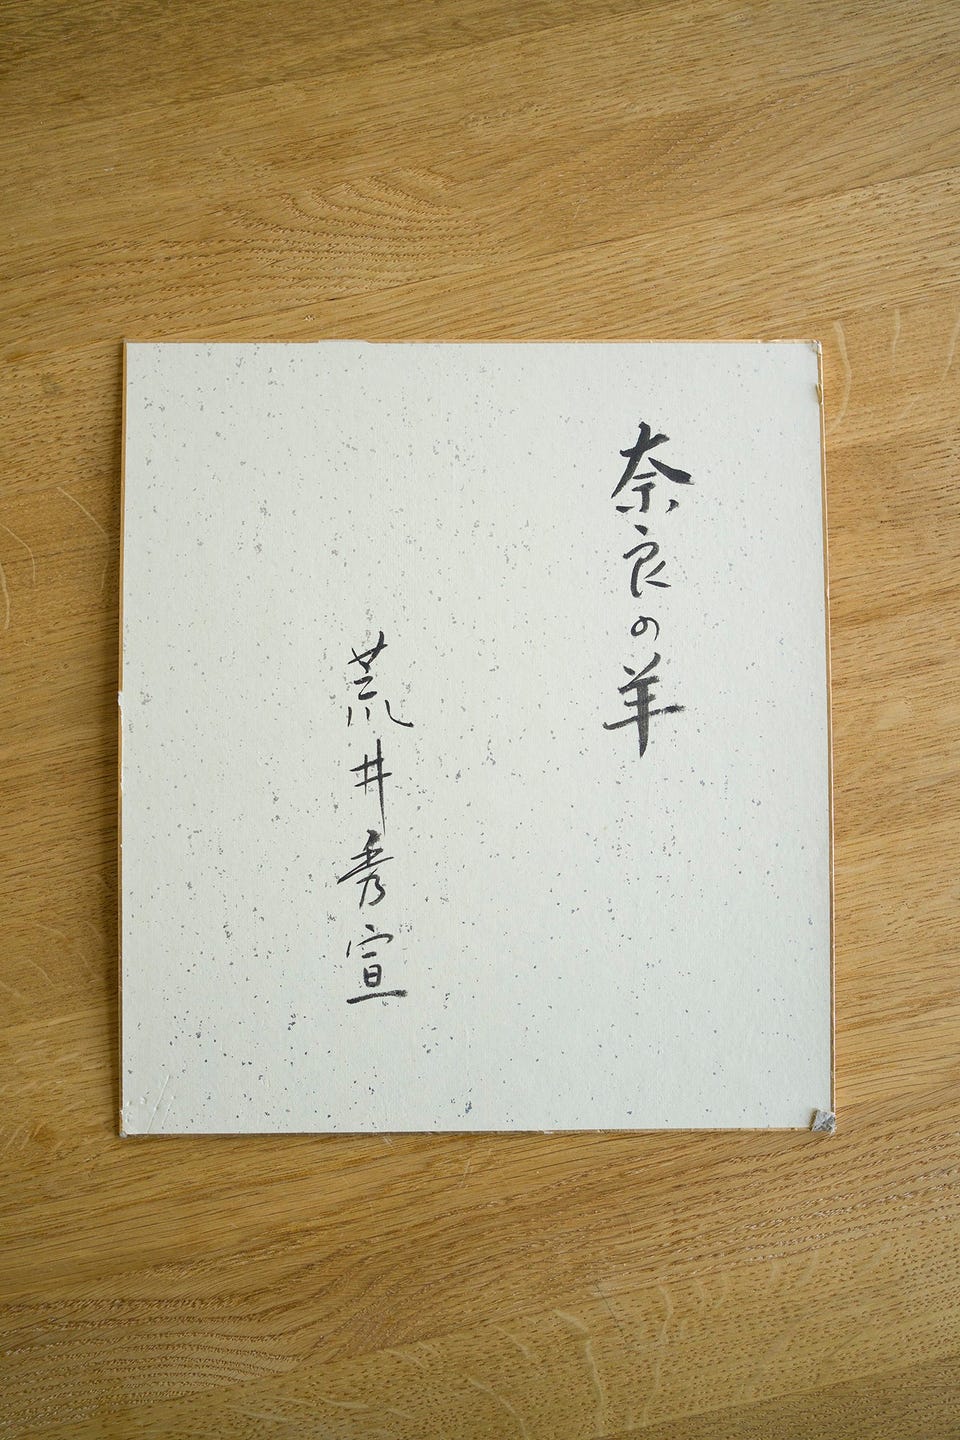 奈良の羊
荒井秀宣